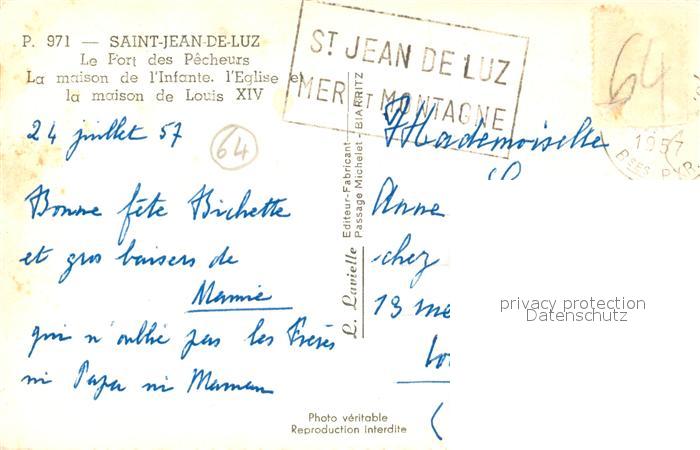 P. 971 — SAINT-JEAN-DE-LUZ
Le Port des Pêcheurs
La maison de l'Infante, l'Eglise et
la maison de Louis XIV
ST JEAN DE LUZ
MER ET MONTAGNE
64
1957
24 juillet 57
64
Bonne fête Bichette
et gros baisers de
Mamie
qui n'oublie pas les Frères
ni Papa ni Maman
L. Lavielle
Editeur-Fabricant
Passage Michelet - BIARRITZ
Mademoiselle
Anne
chez
13
privacy protection
Datenschutz
Photo véritable
Reproduction interdite